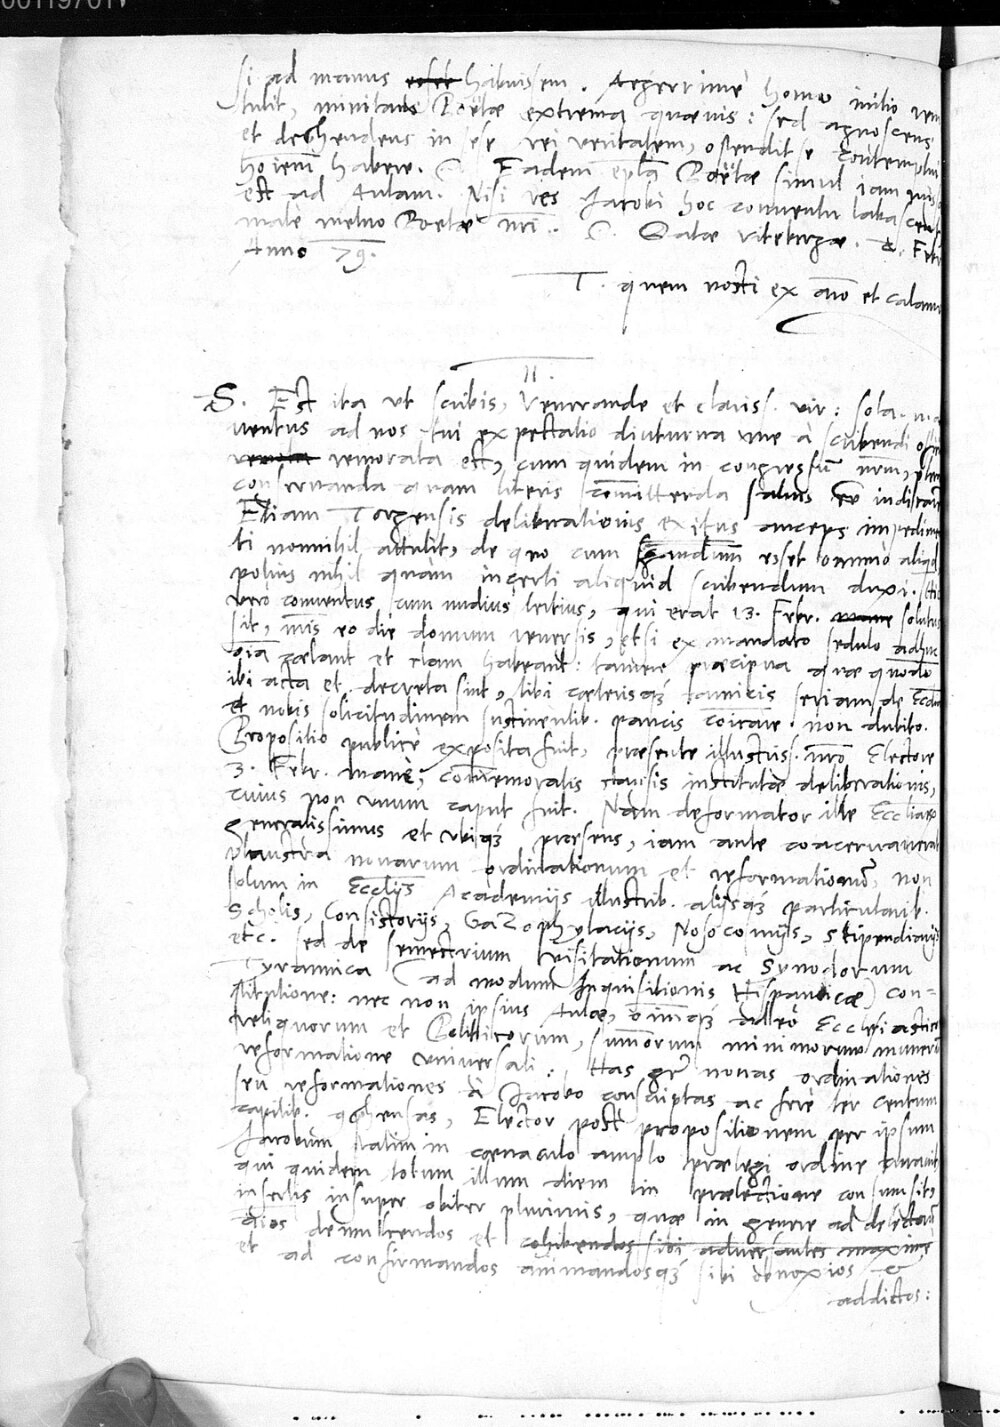 si ad manus habuissem. Aegerrimè homo initio rem
tulit, minitans Poëtae extrema quaevis: sed agnoscens
et dephendens in sese rei veritatem, ostendit se contemptui
hoiem habere. Eadem epla Poëtae simul iam missa
est ad Aulam. Nisi res Jacobi hoc conventu labascens
male metuo Poetae nri. Datae vitebergae. Febr
Anno 79.
T. quem nosti ex aio et calamo
II.
S. Est ita ut scribis, Venerande et clariss. vir: sola
uentus ad nos tui expectatio diuturna me à scribendi
remorata est, cum quidem in congressum nrm,
conservanda quam literis committenda
Etiam Torgensis deliberationis exitus anceps impedimen
ti nonnihil attulit, de quo cum scribendum esset omnino aliqd
potius nihil quàm incerti aliquid scribendum duxi.
verò conventus cum nudius tertius, qui erat 13. Febr. solutus
sit, eo die domum reversis, etsi ex mandato sedulo adhuc
oia caelant et clam habeant: tamen praecipua quae quodo
ibi acta et decreta sint, tibi caeterisqz amicis etiam de Eccla
et nobis solicitudinem sustinentib. paucis coicare non dubito.
Propositio publicè exposita fuit, praesente illustriss. nro Electore
3. Febr. manè, commemoratis causis institutae deliberationis,
cuius non unum caput fuit. Nam deformator ille Eccliarum
generalissimus et ubiqz praesens, iam ante coacervauerat
plaustra novarum ordinationum et reformationum, non
solum in Eccliis Academijs illustrib. alijsqz particularib.
Scholis, Consistorijs, Gazophylacijs, Nosocomijs, Stipendiarijs
etc. sed de semestrium visitationum ac Synodorum
Tyrannica (ad modum Inquisitionis Hispanicae) con=
stitutione: nec non ipsius Aulae, oimqz adeò Ecclesiasticorum
reliquorum et Politicorum, summorum minimorum munerum
reformatione universali: Has gr novas ordinationes
seu reformationes à Jacobo conscriptas ac ferè ter centum
capitib. qphensas, Elector post propositionem per ipsum
Jacobum statim in caenaculo amplo praelegi ordine curavit,
qui quidem totum illum diem in praelectione consumsit,
insertis insuper obiter plurimis, quae in genere ad delectandum
aios demulcendos et cohibendos sibi adversantes maximè
et ad confirmandos animandosqz sibi obnoxios et
addictos: